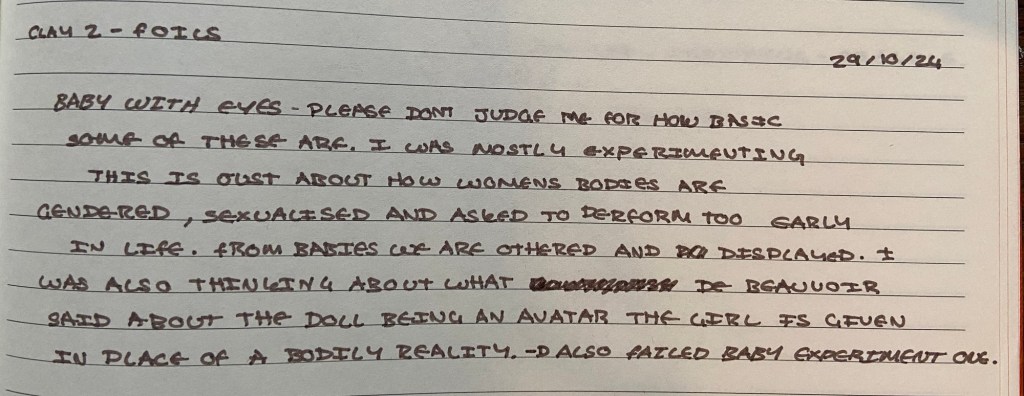 CLAY 2 - FOILS
29/10/24
BABY WITH EYES - PLEASE DONT JUDGE ME FOR HOW BASIC
SOME OF THESE ARE. I WAS MOSTLY EXPERIMENTING
THIS IS JUST ABOUT HOW WOMENS BODIES ARE
GENDERED, SEXUALISED AND ASKED TO PERFORM TOO EARLY
IN LIFE. FROM BABIES WE ARE OTHERED AND DISPLAYED. I
WAS ALSO THINKING ABOUT WHAT DE BEAUVOIR
SAID ABOUT THE DOLL BEING AN AVATAR THE GIRL IS GIVEN
IN PLACE OF A BODILY REALITY. -D ALSO FAILED BABY EXPERIMENT ONE.